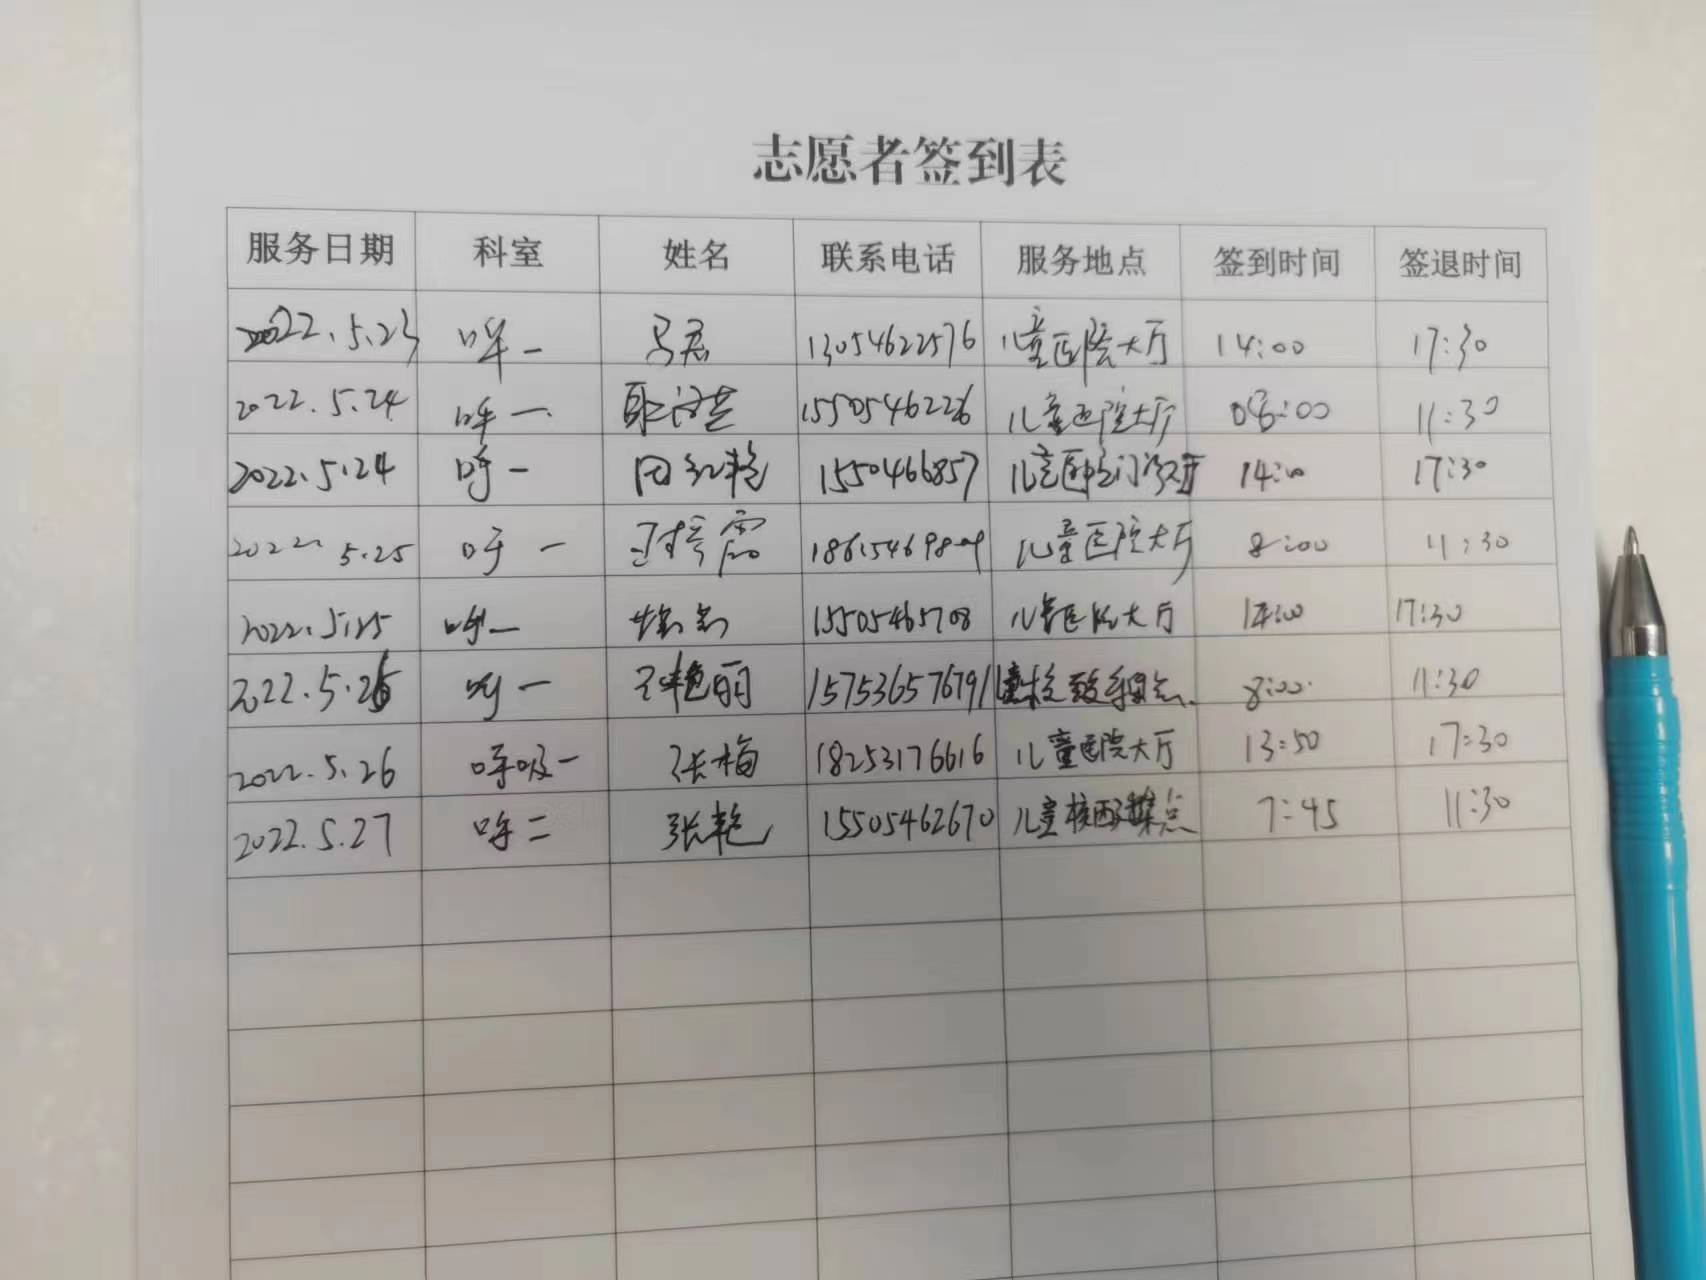 志愿者签到表
服务日期 科室 姓名 联系电话 服务地点 签到时间 签退时间
2022.5.23 呼一 马君 13054622576 儿童医院大厅 14:00 17:30
2022.5.24 呼一 15505466226 儿童医院大厅 08:00 11:30
2022.5.24 呼一 田红艳 1550466857 儿童医院门诊大厅 14:00 17:30
2022. 5.25 呼一 儿童医院大厅 8:00 11:30
2022.5.25 呼一 15505465708 儿童医院大厅 14:00 17:30
2022.5.26 呼一 艳丽 15753657679 8:00 11:30
2022.5.26 呼吸一 张梅 18253176616 儿童医院大厅 13:50 17:30
2022.5.27 呼二 张艳 15505462670 儿童核酸采点 7:45 11:30